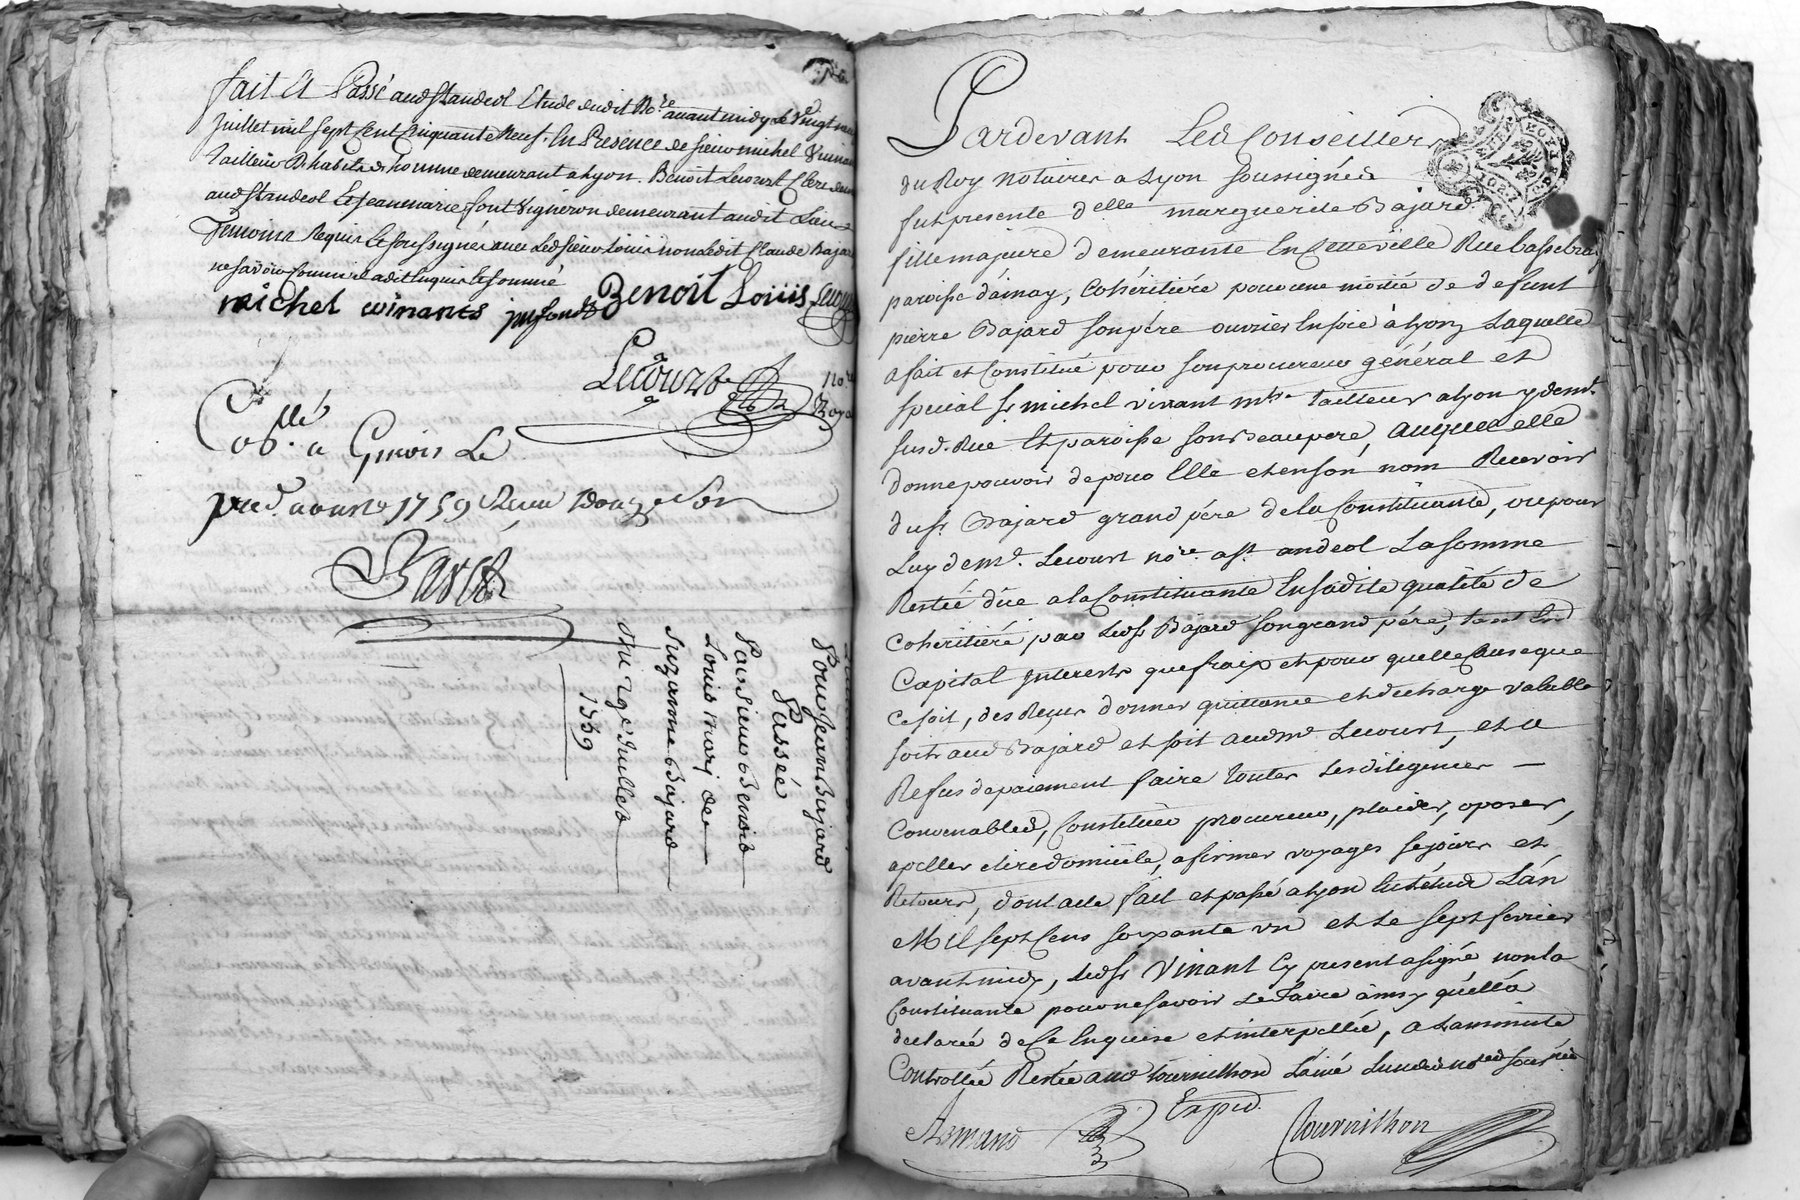 fait et Passé aud St andeol Etude dudit No.re avant midy le vingt neuf
Juillet mil sept Cent Cinquante Neuf. En Presence de sieur michel Vuinans
tailleur D'habits d'homme demeurant a Lyon. Benoit Lecourt Clerc
aud St andeol et Jean marie font Vigneron demeurant audit Lieu
Temoins Requis et soussignés avec led sieur Louis non ledit Claude Bajard
ne savoir comme il a dit Enquis et sommé
michel winants j m fond Benoit Louis Lecourt
Lecourt No.re Royal
Con.llé a Givors Le
pred. aoust 1759 Recu Douze sols
Pour Jean Bajard
Passée
Par sieur Benoit
Louis mary de
Suzanne Bajard
du 29e Juillet
1759
Pardevant Les Conseillers
du Roy notaires a Lyon soussignés
fut presente d.elle marguerite Bajard
fille majeure demeurante En Cette ville Rue
paroisse d'ainay, Cohéritiére pour une moitié de defunt
pierre Bajard son pére ouvrier En soie à Lyon, Laquelle
a fait et Constitué pour son procureur général et
special sr michel vinant m.tre tailleur a Lyon y dem.t
susd. Rue Et paroisse son Beaupere, auquel elle
donne pouvoir de pour Elle et en son nom Recevoir
du sr Bajard grand pére de la Constituante, ou pour
Luy de m.e Lecourt no.re a St andeol La somme
Restée dûe a la Constituante En sa dite qualité de
Cohéritiére par led sr Bajard son grand pére, tant En
Capital Interests que fraix et pour quelle Cause que
Ce soit, des Reçus donner quittance et decharge valable
soit aud Bajard et soit aud m.e Lecourt, et a
Refus de paiement faire toutes les diligences
Convenables, Constituer procureur, plaider, oposer,
apeller elire domicile, afirmer voyages sejours et
Retours, dont acte fait et passé a Lyon En l'étude L'an
Mil sept Cens soixante un et le sept fevrier
avant midy, led sr Vinant Cy present a signé non la
Constituante pour ne savoir Le faire ainsy qu'ella
declarée de Ce Enquise et interpellée, a La minute
Controllée Restée aud tournilhon L'ainé L'un des no.res sous.nés
Exped.
Armand Tournilhon